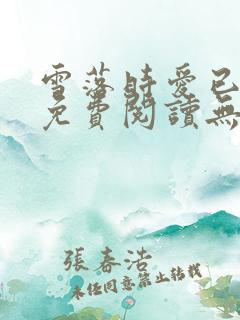 雪落時愛已
免費閱讀無
張春浩
未经同意禁止转载